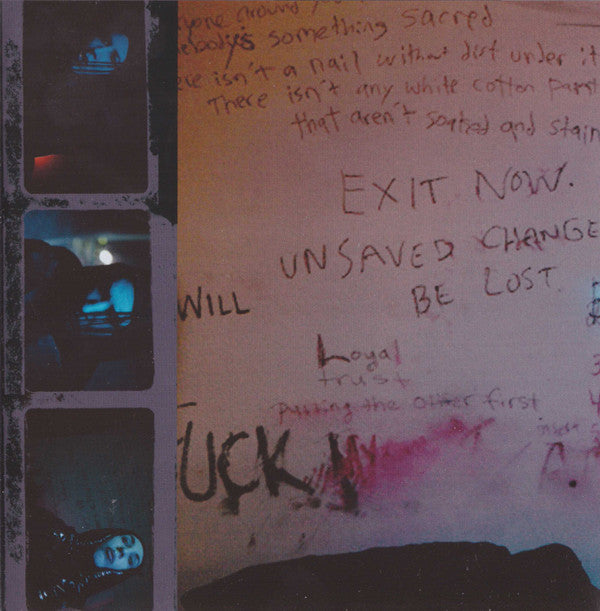 everyone around you
somebody's something sacred
there isn't a nail without dirt under it
There isn't any white cotton
that aren't soiled and stain
EXIT NOW.
UNSAVED CHANGE
WILL
BE LOST.
Loyal
trust
putting the other first
FUCK